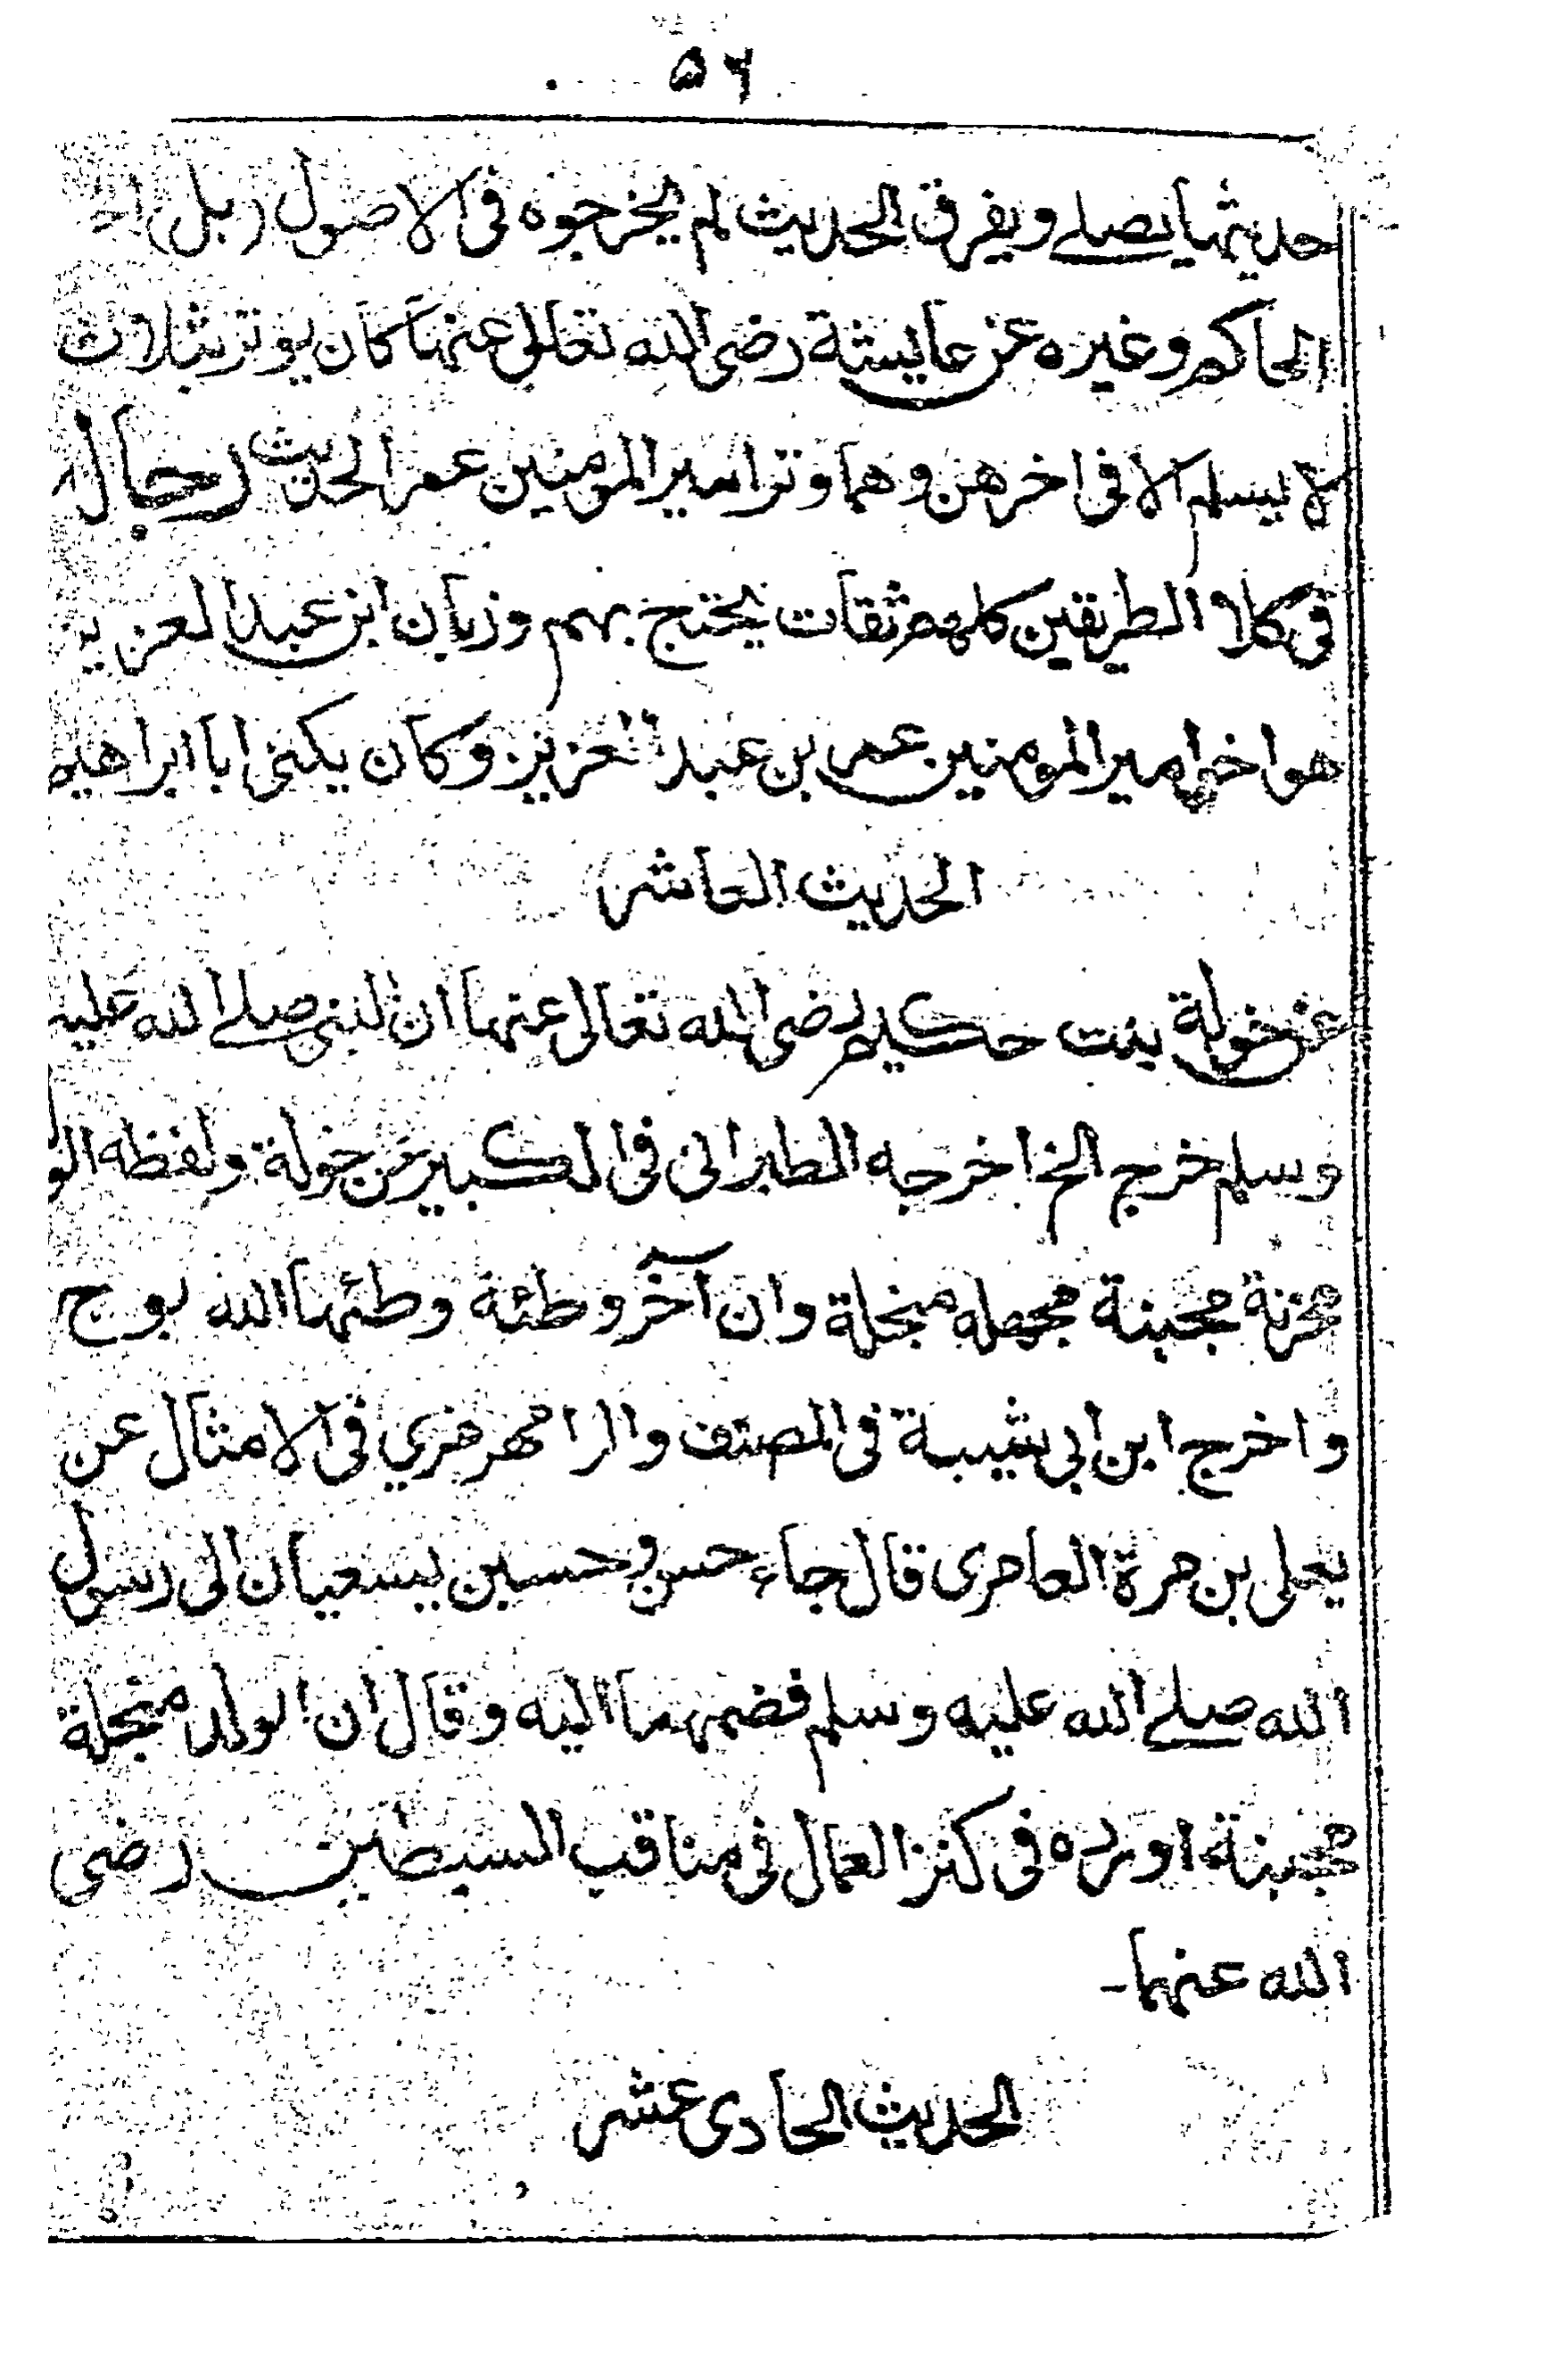 ۵۶
حديثهما يصلے ويفرق الحديث لم يخرجوه فى الاصول (بل)
الحاكم وغيره عن عايشة رضى الله تعالى عنها كان يوتر بثلاث
لا يسلم الا فى اخرهن وهما وتر امير المومنين عمر الحديث رجال
فى كلا الطريقين كلهم ثقات يحتج بهم وزبان ابن عبد العزيز
هو اخو امير المومنين عمر بن عبد العزيز وكان يكنى ابا ابراهيم
الحديث العاشر
عن خولة بنت حكيم رضى الله تعالى عنها ان النبى صلے الله عليه
وسلم خرج الخ اخرجه الطبرانى فى الكبير عن خولة ولفظه
محزنة مجبنة مجهلة مبخلة وان آخر وطئة وطئها الله بوج
واخرج ابن ابي شيبة فى المصنف والرامهرمزي فى الامثال عن
يعلى بن مرة العامرى قال جاء حسن وحسين يسعيان الى رسول
الله صلے الله عليه وسلم فضمهما اليه وقال ان الولد مبخلة
مجبنة اورده فى كنز العمال فى مناقب السبطين رضى
الله عنهما-
الحديث الحادى عشر